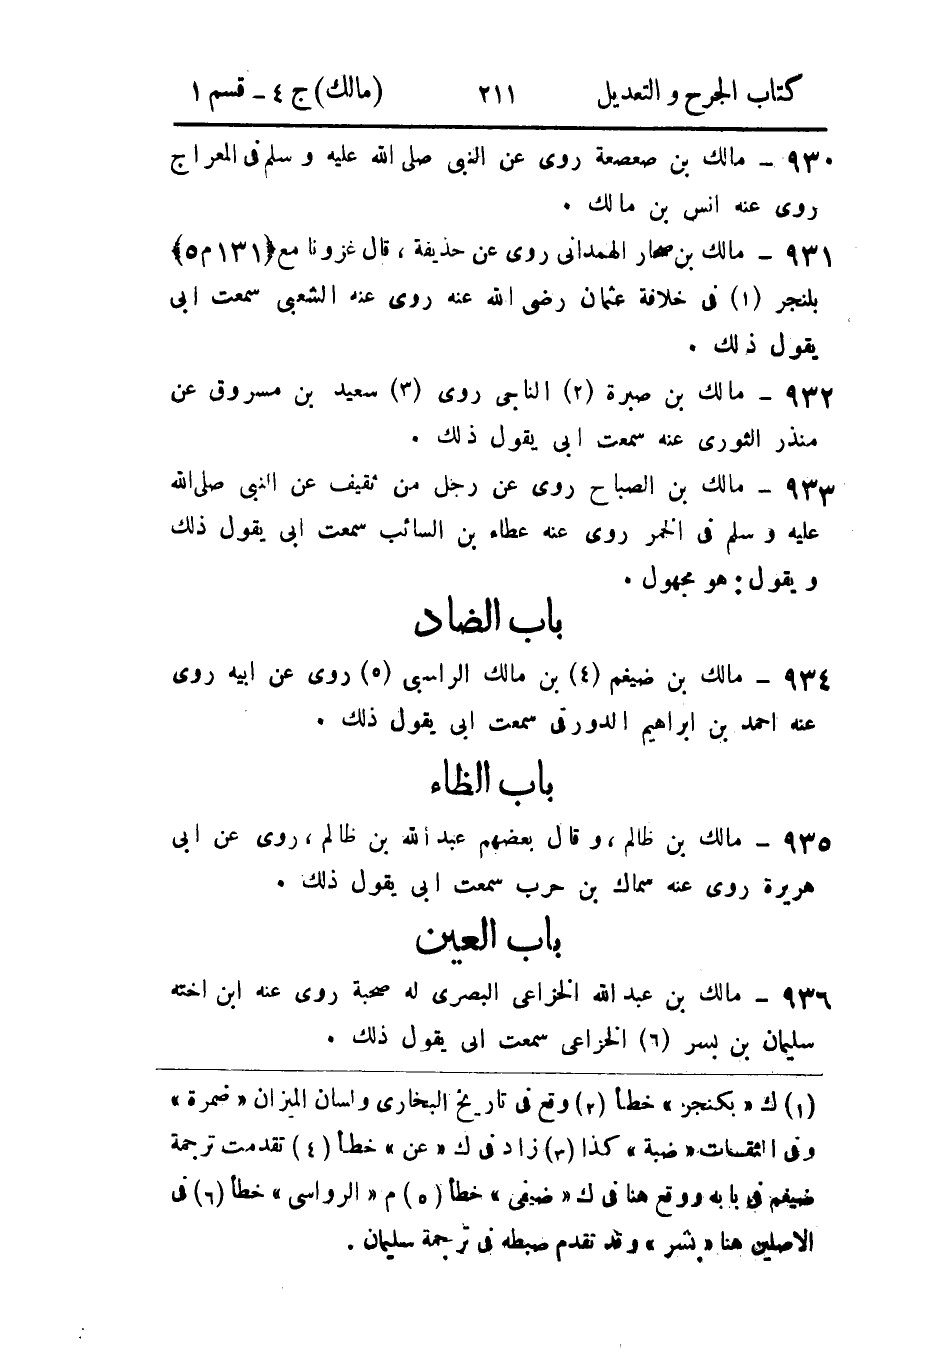 كتاب الجرح و التعديل ٢١١ (مالك) ج ٤ - قسم ١
٩٣٠ - مالك بن صعصعة روى عن النبى صلى الله عليه و سلم فى المعراج
روى عنه انس بن مالك .
٩٣١ - مالك بن صحار الهمدانى روى عن حذيفة ، قال غزونا مع ﴿١٣١ م ٥﴾
بلنجر (١) فى خلافة عثمان رضى الله عنه روى عنه الشعبى سمعت ابى
يقول ذلك .
٩٣٢ - مالك بن صبرة (٢) الناجى روى (٣) سعيد بن مسروق عن
منذر الثورى عنه سمعت ابى يقول ذلك .
٩٣٣ - مالك بن الصباح روى عن رجل من ثقيف عن النبى صلى الله
عليه و سلم فى الخمر روى عنه عطاء بن السائب سمعت ابى يقول ذلك
و يقول : هو مجهول .
باب الضاد
٩٣٤ - مالك بن ضيغم (٤) بن مالك الراسبى (٥) روى عن ابيه روى
عنه احمد بن ابراهيم الدورقى سمعت ابى يقول ذلك .
باب الظاء
٩٣٥ - مالك بن ظالم ، و قال بعضهم عبد الله بن ظالم ، روى عن ابى
هريرة روى عنه سماك بن حرب سمعت ابى يقول ذلك .
باب العين
٩٣٦ - مالك بن عبد الله الخزاعى البصرى له صحبة روى عنه ابن اخته
سليمان بن بسر (٦) الخزاعى سمعت ابى يقول ذلك .
(١) ك « بكنجر » خطأ (٢) وقع فى تاريخ البخارى ولسان الميزان « ضمرة »
وفى الثقات « ضبة » كذا (٣) زاد فى ك « عن » خطأ (٤) تقدمت ترجمة
ضيغم فى بابه ووقع هنا فى ك « ضيفى » خطأ (٥) م « الرواسى » خطأ (٦) فى
الاصلين هنا « بشر » وقد تقدم ضبطه فى ترجمة سليمان .